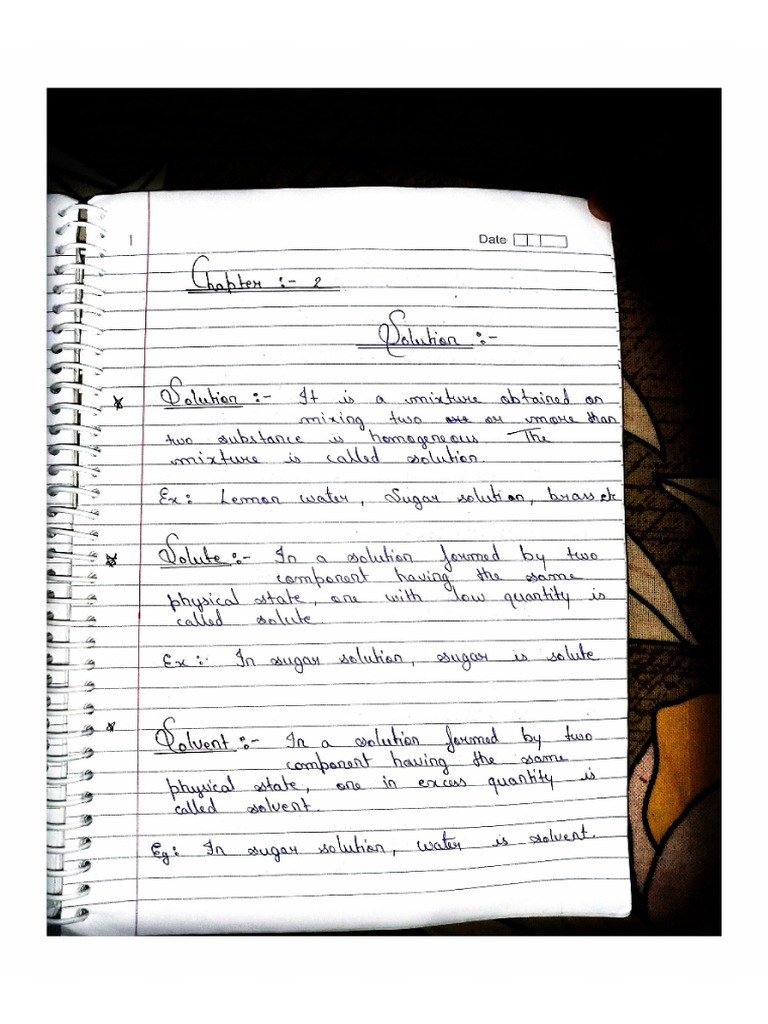 1
Date
Chapter :- 2
Solution :-
Solution :- It is a mixture obtained on
mixing two or more than
two substance is homogeneous The
mixture is called solution.
Ex: Lemon water, Sugar solution, brass etc
Solute :- In a solution formed by two
component having the same
physical state, one with low quantity is
called solute.
Ex :- In sugar solution, sugar is solute
Solvent :- In a solution formed by two
component having the same
physical state, one in excess quantity is
called solvent.
Eg: In sugar solution, water is solvent.